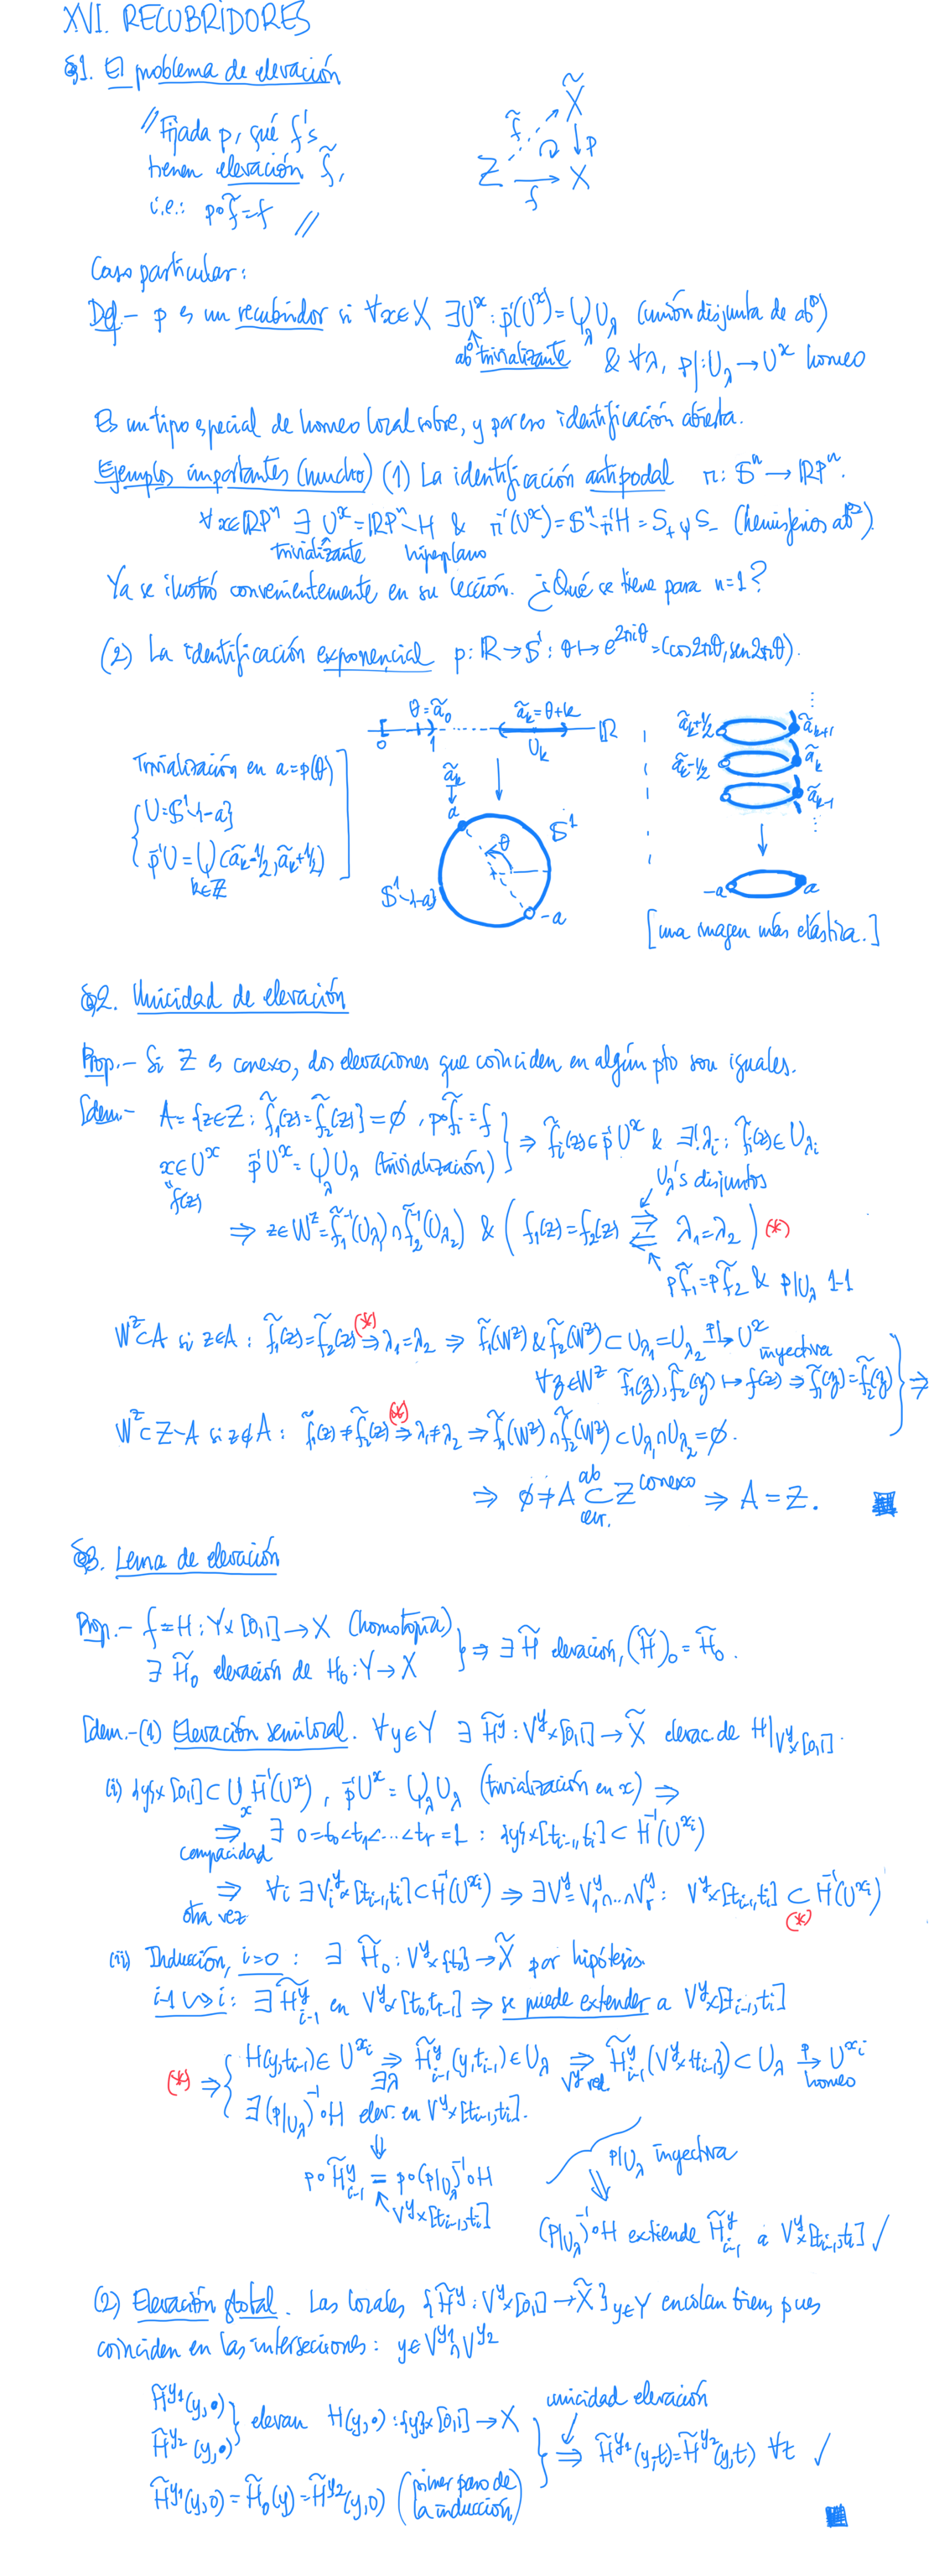 XVI. RECUBRIDORES
§1. El problema de elevación
"Fijada p, qué f's
tienen elevación f̃,
i.e.: p∘f̃=f "
X̃
f̃ p
Z → X
f
Caso particular:
Def.- p es un recubridor si ∀x∈X ∃Uˣ: p⁻¹(Uˣ)=⨄_λ U_λ (unión disjunta de abᵒˢ)
abᵒ trivializante & ∀λ, p|:U_λ→Uˣ homeo
Es un tipo especial de homeo local sobre, y por eso identificación abierta.
Ejemplos importantes (mucho) (1) La identificación antipodal π: 𝕊ⁿ→ℝPⁿ.
∀x∈ℝPⁿ ∃ Uˣ=ℝPⁿ∖H & π⁻¹(Uˣ)=𝕊ⁿ∖π⁻¹H=S₊⊎S₋ (hemisferios abᵒˢ).
trivializante hiperplano
Ya se ilustró convenientemente en su lección. ¿Qué se tiene para n=1?
(2) La identificación exponencial p: ℝ→𝕊¹: θ↦e^{2πiθ}=(cos2πθ, sen2πθ).
θ=ã₀ ã_k=θ+k ℝ
0 1 U_k
Trivialización en a=p(θ)
U=𝕊¹∖{-a}
p⁻¹U=⨄_{k∈ℤ}(ã_k-1/2, ã_k+1/2)
ã_k
a 𝕊¹
θ
𝕊¹∖{-a}
-a
ã_k+1/2 ã_{k+1}
ã_k-1/2 ã_k
ã_{k-1}
-a a
[una imagen más elástica.]
§2. Unicidad de elevación
Prop.- Si Z es conexo, dos elevaciones que coinciden en algún pto son iguales.
[dem.- A={z∈Z: f̃₁(z)=f̃₂(z)}≠∅, p∘f̃ᵢ=f
x∈Uˣ p⁻¹Uˣ=⨄_λ U_λ (trivialización) } ⇒ f̃ᵢ(z)∈p⁻¹Uˣ & ∃!λᵢ: f̃ᵢ(z)∈U_{λᵢ}
f(z)
U_λ's disjuntos
⇒ z∈W^z=f̃₁⁻¹(U_{λ₁})∩f̃₂⁻¹(U_{λ₂}) & (f̃₁(z)=f̃₂(z) ⇄ λ₁=λ₂) (*)
pf̃₁=pf̃₂ & p|U_λ 1-1
W^z⊂A si z∈A: f̃₁(z)=f̃₂(z) ⇒(*) λ₁=λ₂ ⇒ f̃₁(W^z)&f̃₂(W^z)⊂U_{λ₁}=U_{λ₂} →p| Uˣ
inyectiva
∀z∈W^z f̃₁(z), f̃₂(z)↦f(z) ⇒ f̃₁(z)=f̃₂(z) } ⇒
W^z⊂Z∖A si z∉A: f̃₁(z)≠f̃₂(z) ⇒(*) λ₁≠λ₂ ⇒ f̃₁(W^z)∩f̃₂(W^z)⊂U_{λ₁}∩U_{λ₂}=∅.
⇒ ∅≠A ⊂ Z conexo ⇒ A=Z.
ab
cerr.
§3. Lema de elevación
Prop.- f=H: Y×[0,1]→X (homotopía)
∃ H̃₀ elevación de H₀: Y→X } ⇒ ∃ H̃ elevación, (H̃)₀=H̃₀.
[dem.-(1) Elevación semilocal. ∀y∈Y ∃ H̃ʸ: Vʸ×[0,1]→X̃ elevac. de H|_{Vʸ×[0,1]}.
(i) {y}×[0,1]⊂⋃_x H⁻¹(Uˣ), p⁻¹Uˣ=⨄_λ U_λ (trivialización en x) ⇒
⇒ ∃ 0=t₀<t₁<...<t_r=1: {y}×[t_{i-1},t_i]⊂H⁻¹(U^{xᵢ})
compacidad
⇒ ∀i ∃Vᵢʸ×[t_{i-1},t_i]⊂H⁻¹(U^{xᵢ}) ⇒ ∃Vʸ=V₁ʸ∩...∩V_rʸ: Vʸ×[t_{i-1},t_i] ⊂ H⁻¹(U^{xᵢ})
otra vez (*)
(ii) Inducción, i=0: ∃ H̃₀: Vʸ×{t₀}→X̃ por hipótesis.
i-1 ⇝ i: ∃ H̃ʸ_{i-1} en Vʸ×[t₀,t_{i-1}] ⇒ se puede extender a Vʸ×[t_{i-1},t_i]
(*) ⇒ { H(y,t_{i-1})∈U^{xᵢ} ⇒ H̃ʸ_{i-1}(y,t_{i-1})∈U_λ ⇒ H̃ʸ_{i-1}(Vʸ×{t_{i-1}})⊂U_λ →p U^{xᵢ}
∃λ Vʸ red. homeo
∃(p|U_λ)⁻¹∘H elev. en Vʸ×[t_{i-1},t_i].
⇓
p∘H̃ʸ_{i-1} = p∘(p|U_λ)⁻¹∘H
Vʸ×[t_{i-1},t_i]
p|U_λ inyectiva
⇓
(p|U_λ)⁻¹∘H extiende H̃ʸ_{i-1} a Vʸ×[t_{i-1},t_i] ✓
(2) Elevación global. Las locales {H̃ʸ: Vʸ×[0,1]→X̃}_{y∈Y} encolan bien, pues
coinciden en las intersecciones: y∈V^{y₁}∩V^{y₂}
H̃^{y₁}(y,•)
H̃^{y₂}(y,•) } elevan H(y,•): {y}×[0,1]→X
unicidad elevación
⇒ H̃^{y₁}(y,t)=H̃^{y₂}(y,t) ∀t ✓
H̃^{y₁}(y,0)=H̃₀(y)=H̃^{y₂}(y,0) (primer paso de
la inducción)